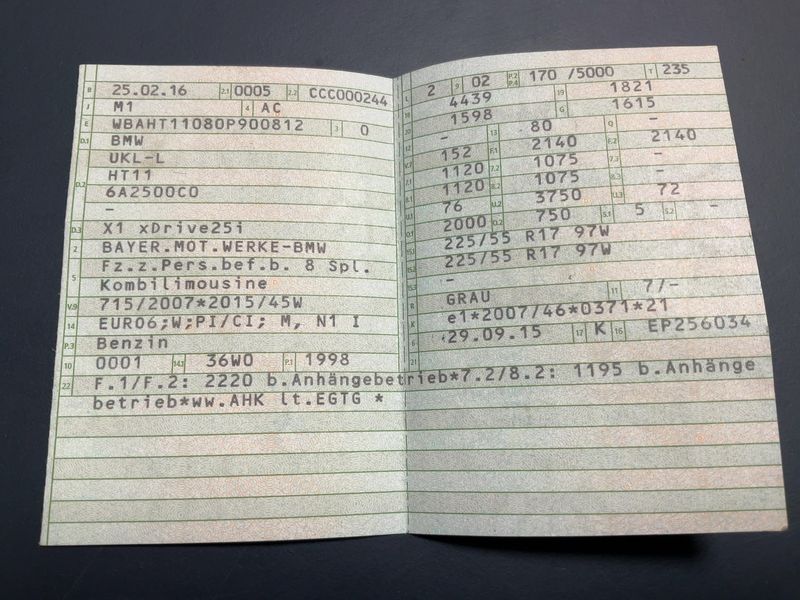 B 25.02.16 2.1 0005 2.2 CCC000244
J M1 4 AC
E WBAHT11080P900812 3 0
D.1 BMW
UKL-L
D.2 HT11
6A2500C0
-
D.3 X1 xDrive25i
2 BAYER.MOT.WERKE-BMW
5 Fz.z.Pers.bef.b. 8 Spl.
Kombilimousine
V.9 715/2007*2015/45W
14 EURO6;W;PI/CI; M, N1 I
P.3 Benzin
10 0001 14.1 36W0 P.1 1998
22 F.1/F.2: 2220 b.Anhängebetrieb*7.2/8.2: 1195 b.Anhänge
betrieb*ww.AHK lt.EGTG *
L 2 9 02 P.2 P.4 170 /5000 T 235
18 4439 19 1821
20 1598 G 1615
12 - 13 80 Q -
V.7 152 F.1 2140 F.2 2140
7.1 1120 7.2 1075 7.3 -
8.1 1120 8.2 1075 8.3 -
U.1 76 U.2 3750 U.3 72
O.1 2000 O.2 750 S.1 5 S.2 -
15.1 225/55 R17 97W
15.2 225/55 R17 97W
15.3 -
R GRAU 11 7/-
K e1*2007/46*0371*21
6 29.09.15 17 K 16 EP256034
21